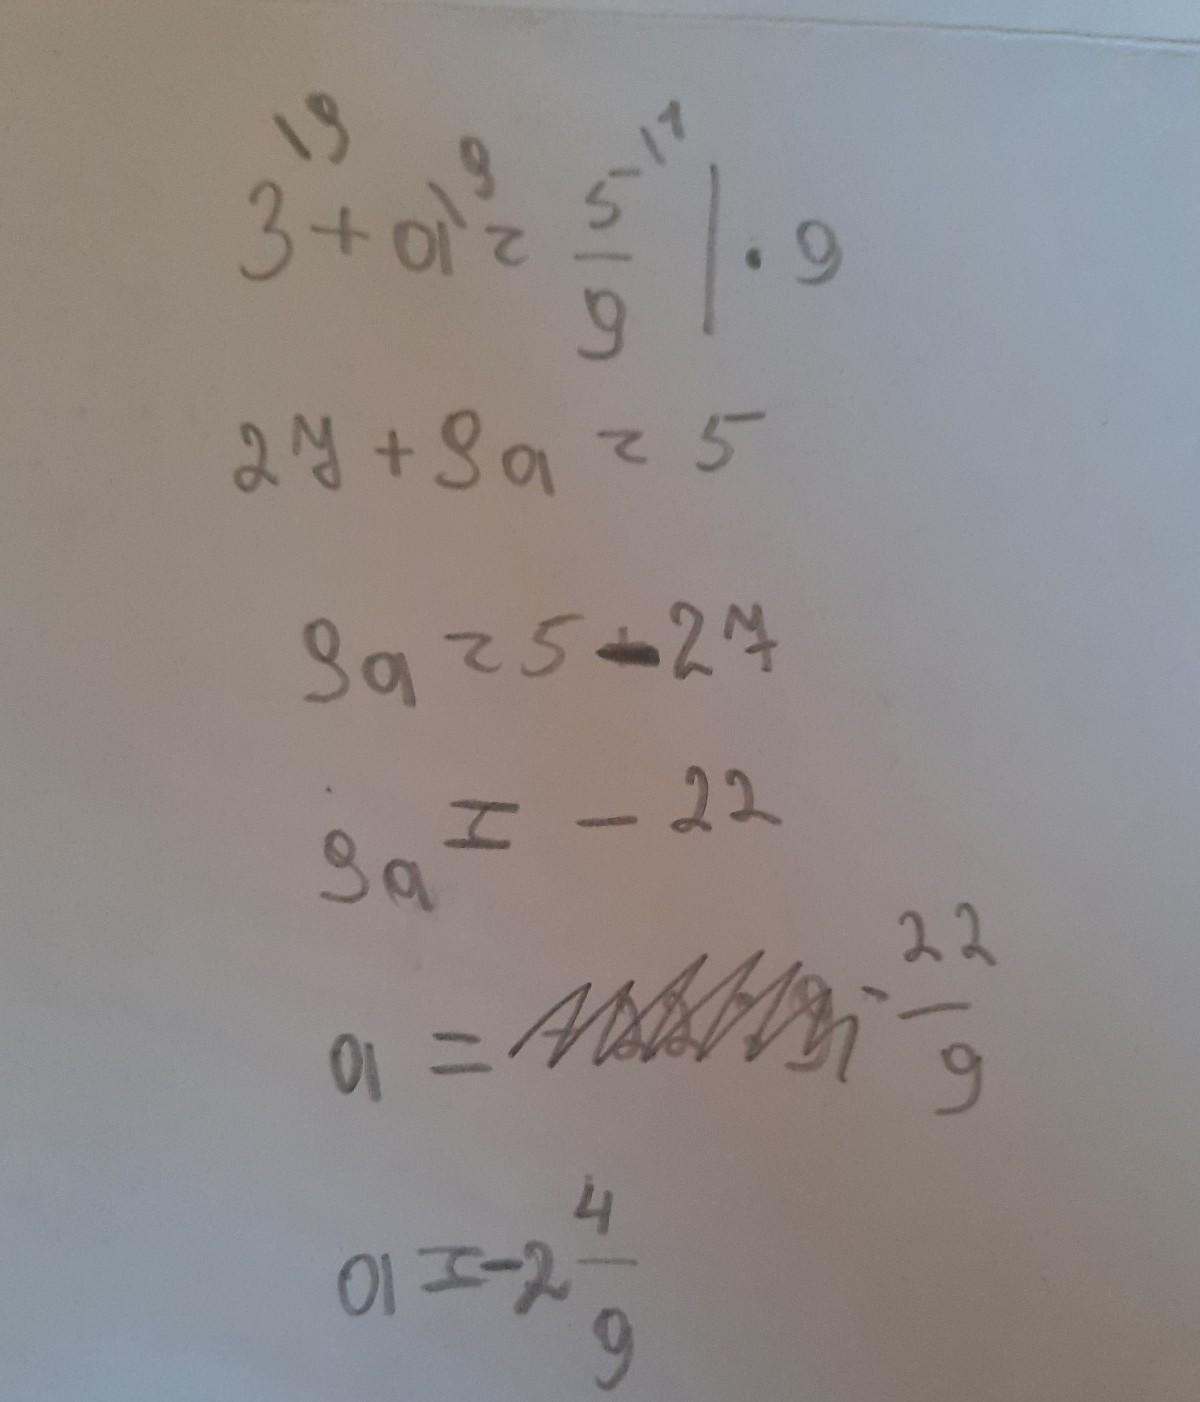 3\9 + a\9 = 5\1/9 | · 9
27 + 9a = 5
9a = 5 - 27
9a = - 22
a = - 22/9
a = -2 4/9